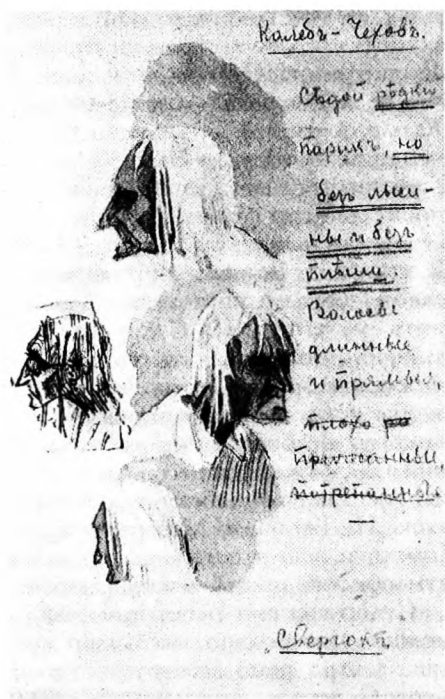 Калебъ-Чеховъ.
Сѣдой рѣдкій
парикъ, но
безъ лыси-
ны и безъ
плѣши.
Волосы
длинные
и прямые,
плохо
причесанные,
потрепанные
Сверчокъ.